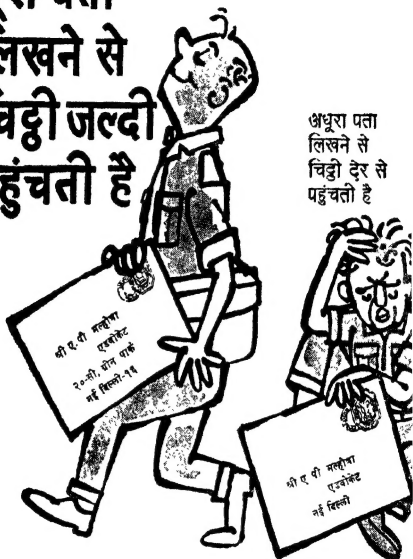 लिखने से
चिट्ठी जल्दी
पहुंचती है
अधूरा पता
लिखने से
चिट्ठी देर से
पहुंचती है
श्री ए. पी मल्होत्रा
एडवोकेट
२०-सी, ग्रीन पार्क
नई दिल्ली-१६
श्री ए पी मल्होत्रा
एडवोकेट
नई दिल्ली